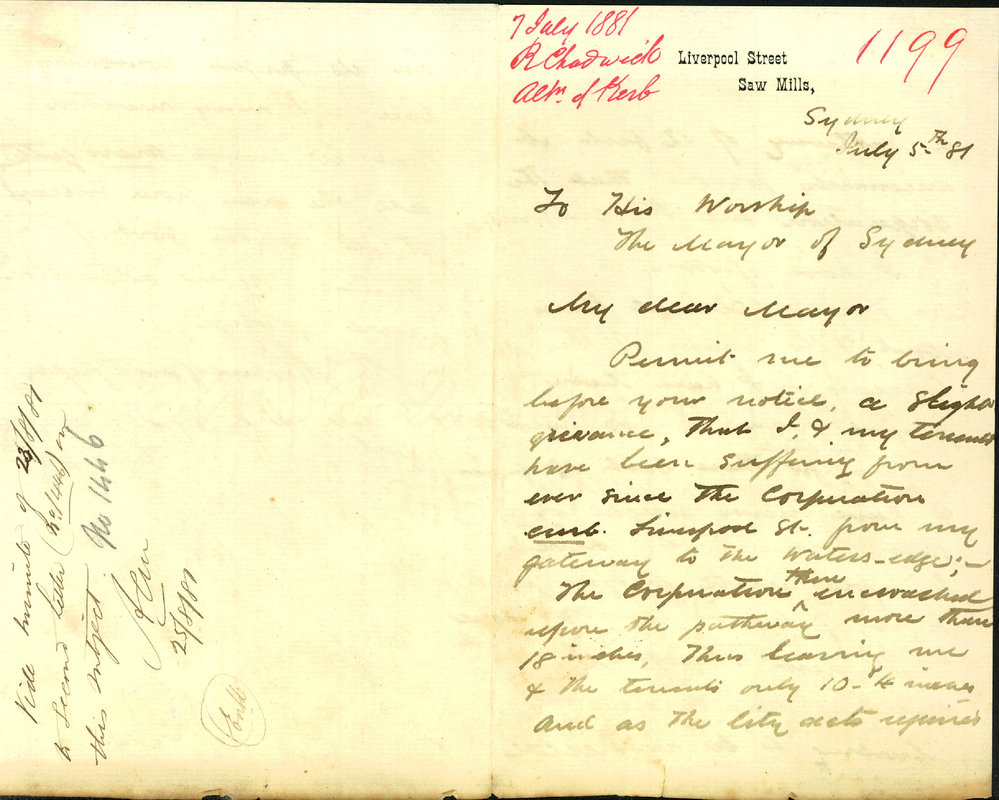 7 July 1881
R Chadwick
Altn. of Kerb
1199
Liverpool Street
Saw Mills,
Sydney
July 5th 81
To His Worship
The Mayor of Sydney
My dear Mayor
Permit me to bring
before your notice, a Slight
grievance, That I, & my tenents
have been suffering from
ever since the Corporation
curb. Liverpool St. from my
gateway to the waters-edge;-
The Corporation there encroached
upore the pathway more than
18 inches, Thus leaving me
& the tenents only 10-4 inches
And as the City acts requires
Vide minute of 23/8/81
to Second letter (No 1446) on
this subject No 1446
25/8/81